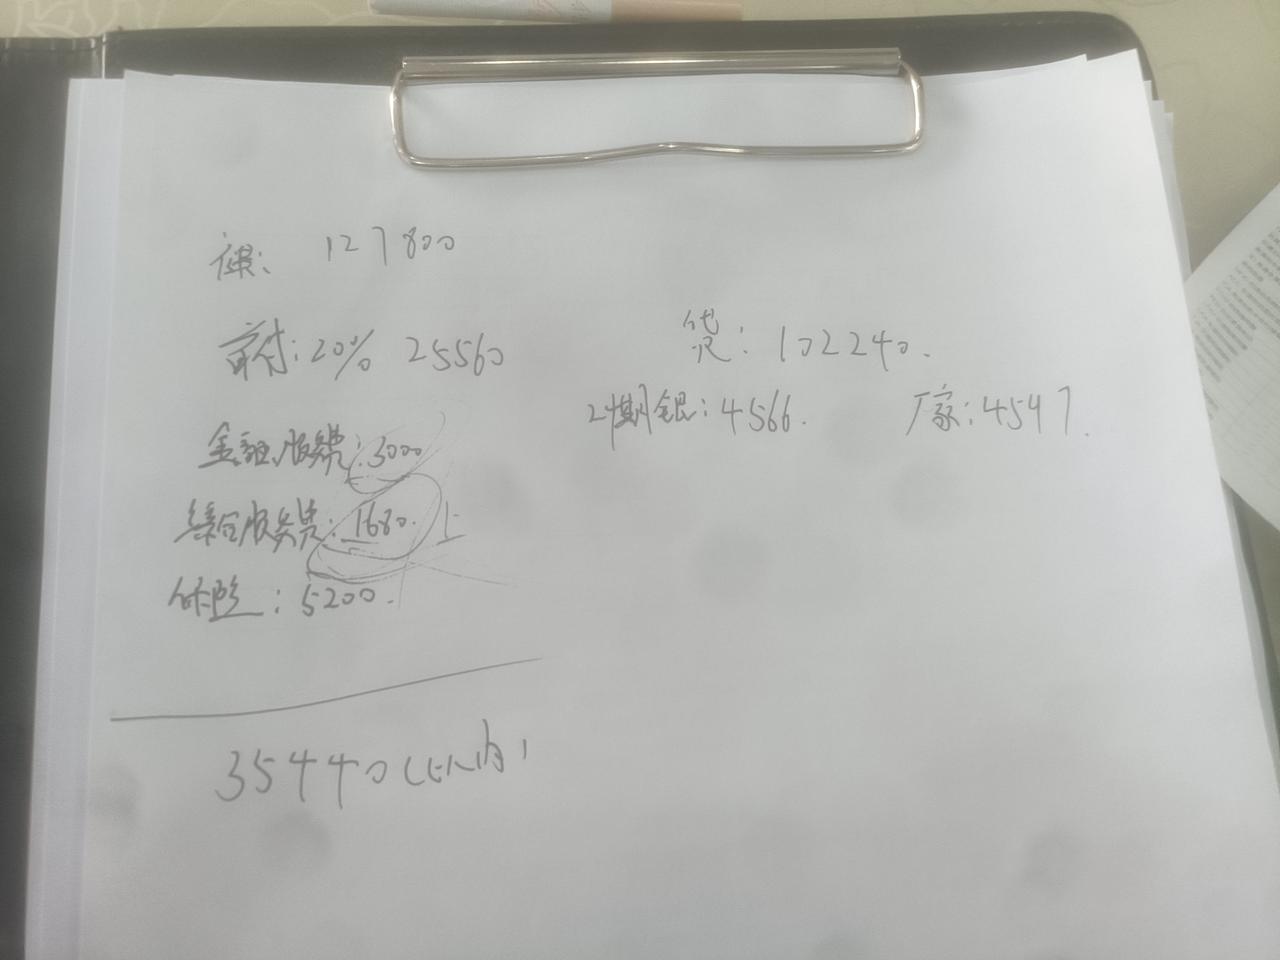 裸: 127800
首付: 20% 25560
贷: 102240.
24期银: 4566. 厂家: 4547.
金融服务费: 3000
综合服务费: 1680.
保险: 5200.
35440 (以内)